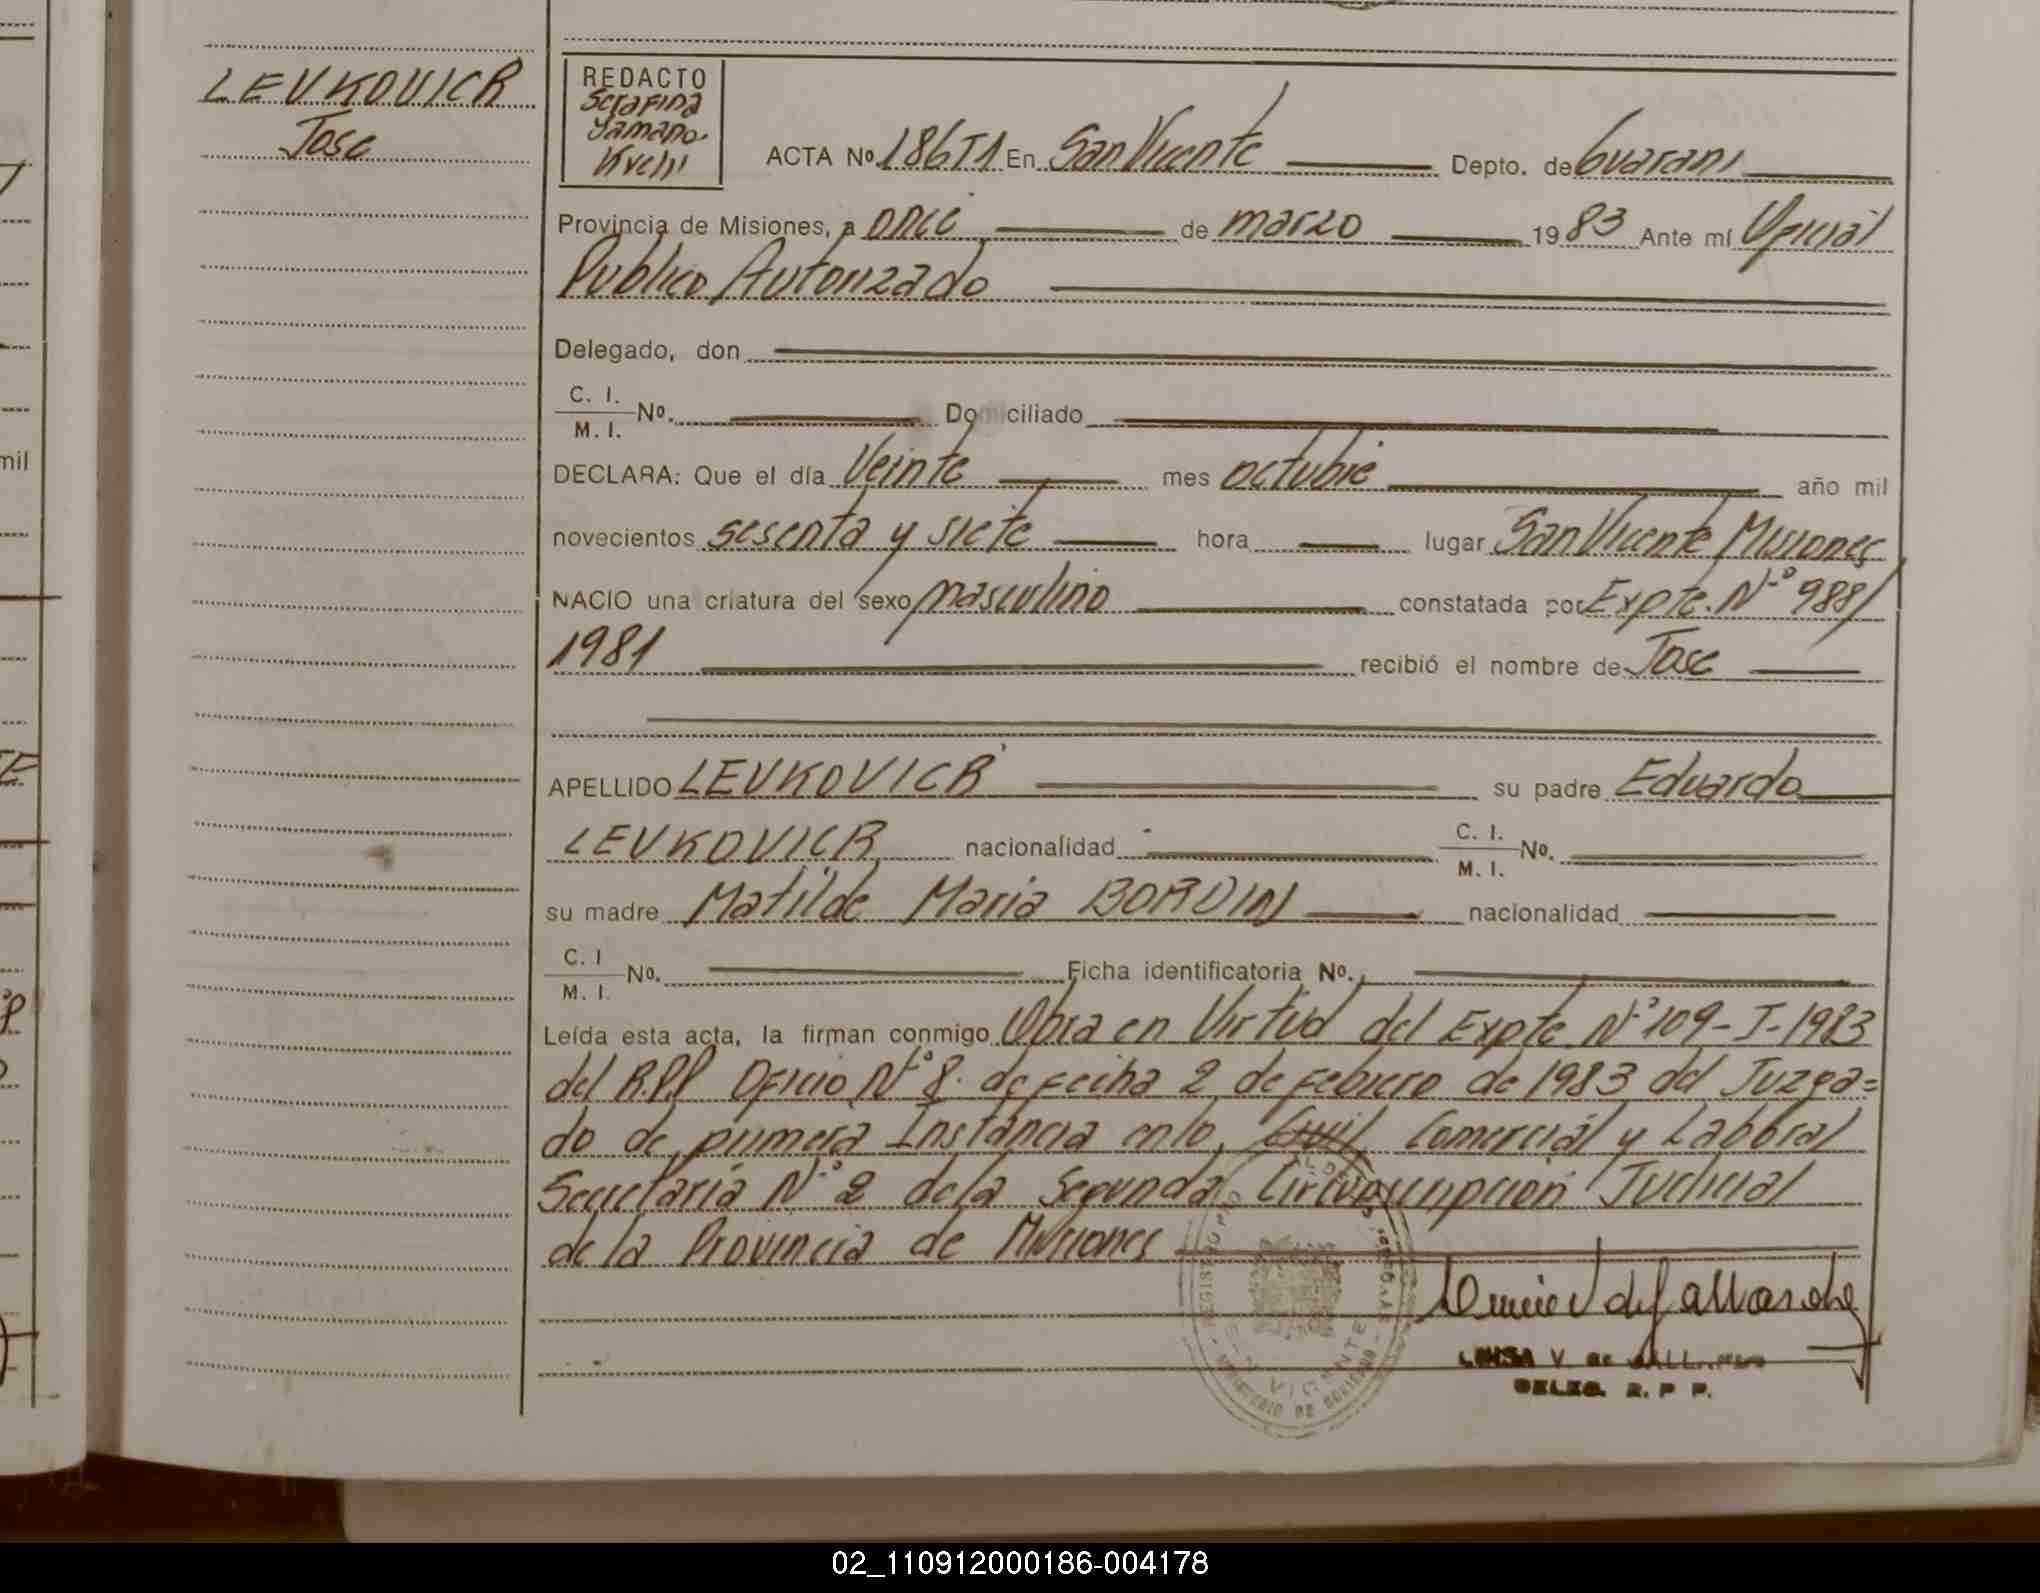 LEVKOVICR
Jose
REDACTO
Serafina
Yamano
ACTA Nº 186T1 En San Vicente Depto. de Guarani
Provincia de Misiones, a once de marzo 1983 Ante mí Oficial
Publico Autorizado
Delegado, don
C. I.
M. I. Nº. Domiciliado
DECLARA: Que el día Veinte mes octubre año mil
novecientos sesenta y siete hora lugar San Vicente Misiones
NACIO una criatura del sexo masculino constatada por Expte. Nº 988/
1981 recibió el nombre de Jose
APELLIDO LEVKOVICR su padre Eduardo
LEVKOVICR nacionalidad C. I.
M. I. Nº.
su madre Matilde Maria BORDIN nacionalidad
C. I
M. I. Nº. Ficha identificatoria Nº.
Leída esta acta, la firman conmigo Obra en Virtud del Expte Nº 109-I-1983
del R.P.P Oficio Nº 8. de fecha 2 de febrero de 1983 del Juzga=
do de primera Instancia en lo, Civil, Comercial y Laboral
Secretaria Nº 2 de la Segunda Circunscripcion Judicial
de la Provincia de Misiones
LUISA V. de
DELEG. R. P P.
mil
02_110912000186-004178